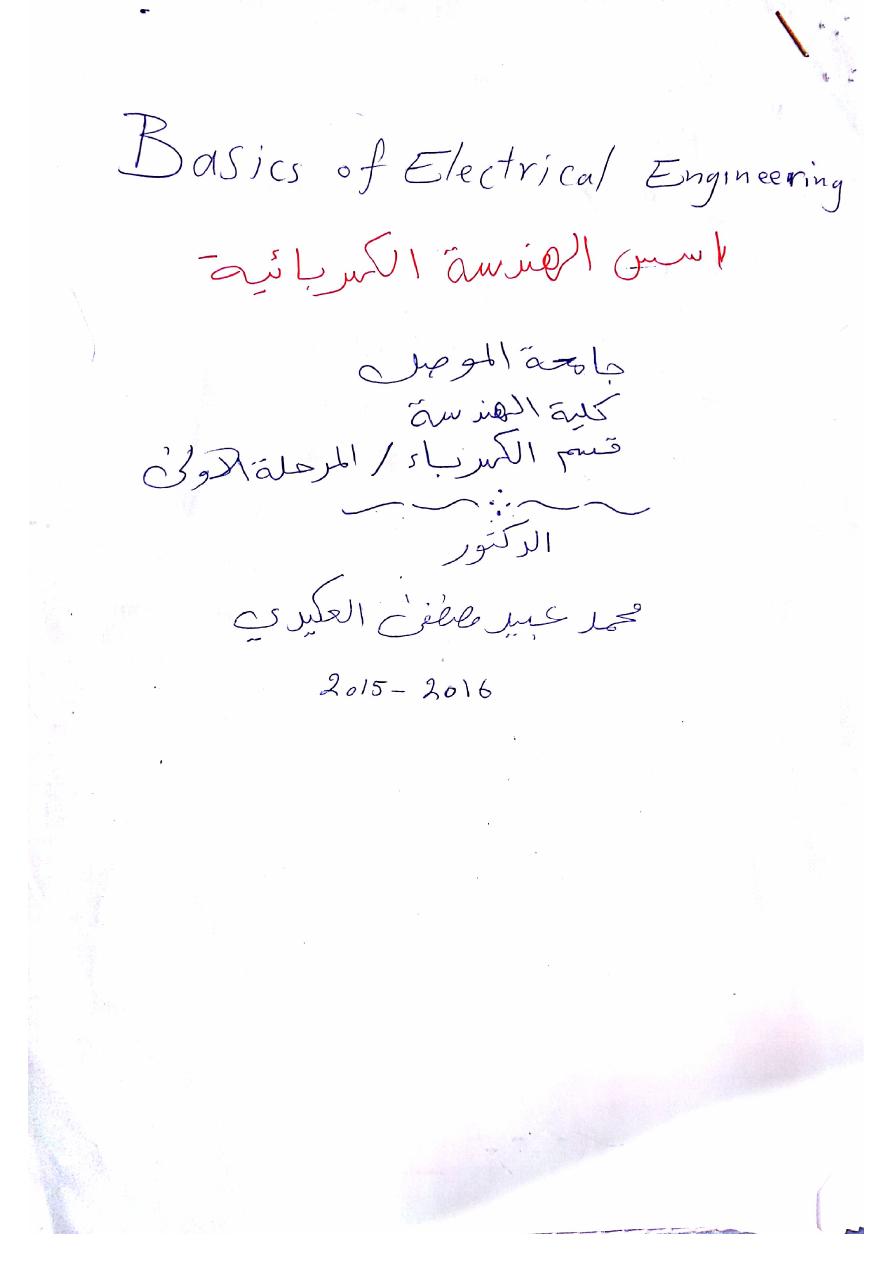 Basics of Electrical Engineering
اسس الهندسة الكهربائية
جامعة الموصل
كلية الهندسة
قسم الكهرباء / المرحلة الاولى
الدكتور
محمد عبيد مصطفى العكيدي
2015 - 2016